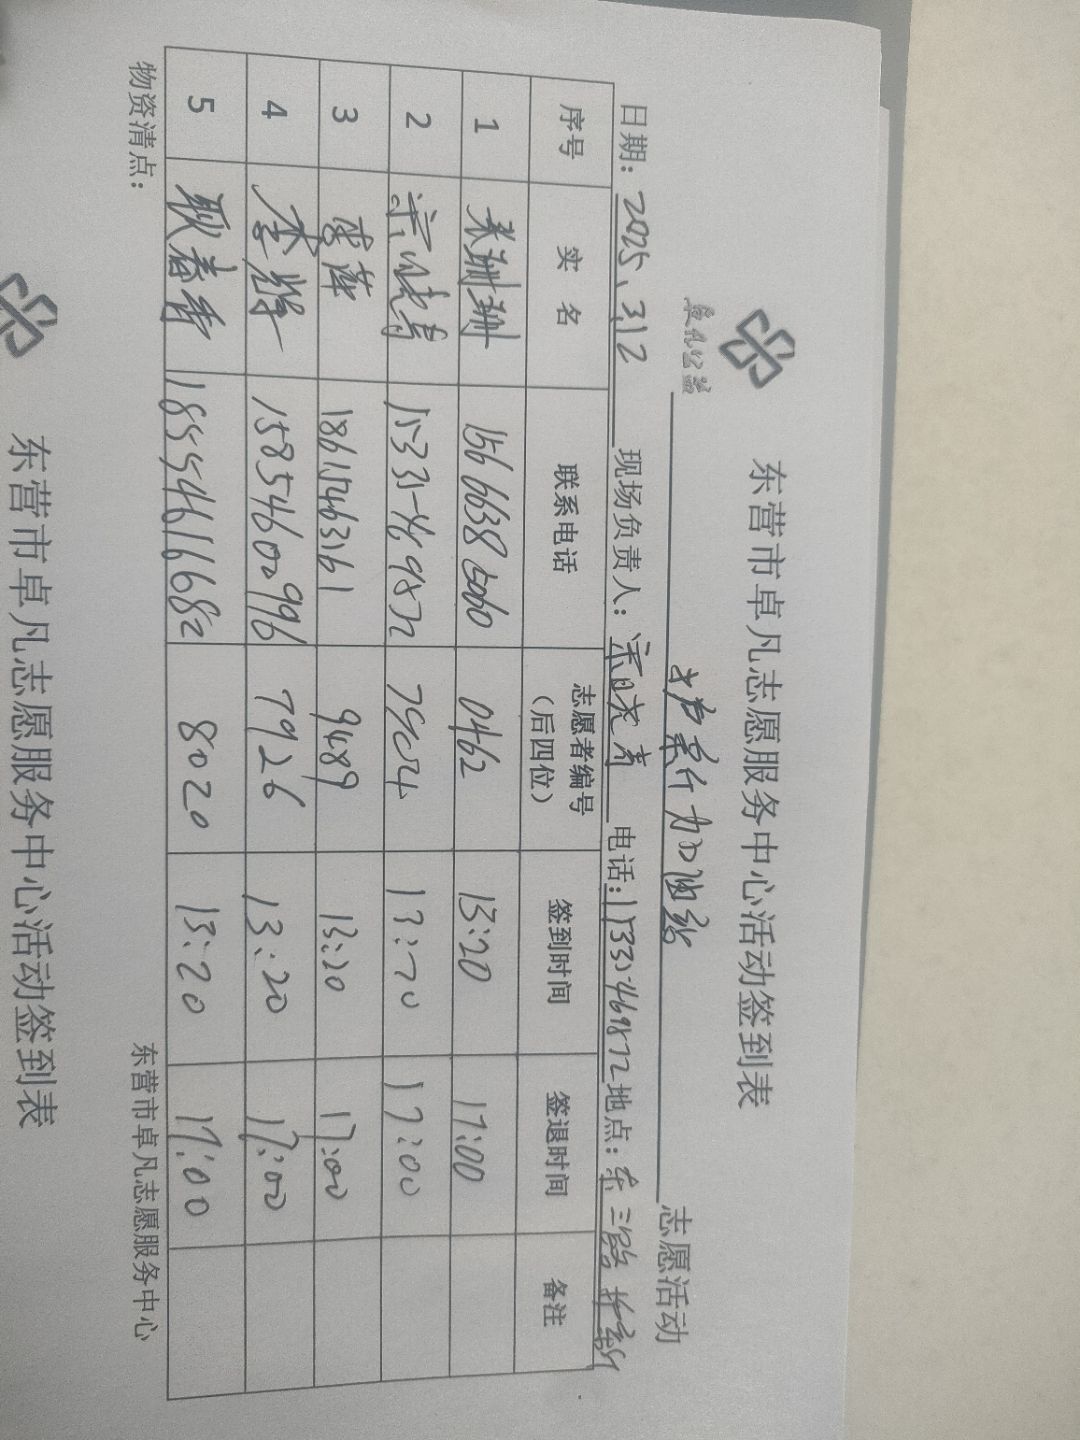 东营市卓凡志愿服务中心活动签到表
卓凡公益
加油站 志愿活动
日期：2025.3.12 现场负责人：宋晓青 电话：15335469872 地点：东三路
序号 实名 联系电话 志愿者编号（后四位） 签到时间 签退时间 备注
1 张珊珊 15666385060 0462 13:20 17:00
2 宋晓青 15335469872 7904 13:20 17:00
3 李萍 18615463161 9489 13:20 17:00
4 李辉 15854600996 7926 13:20 17:00
5 耿春香 18554616682 8020 13:20 17:00
物资清点： 东营市卓凡志愿服务中心
东营市卓凡志愿服务中心活动签到表